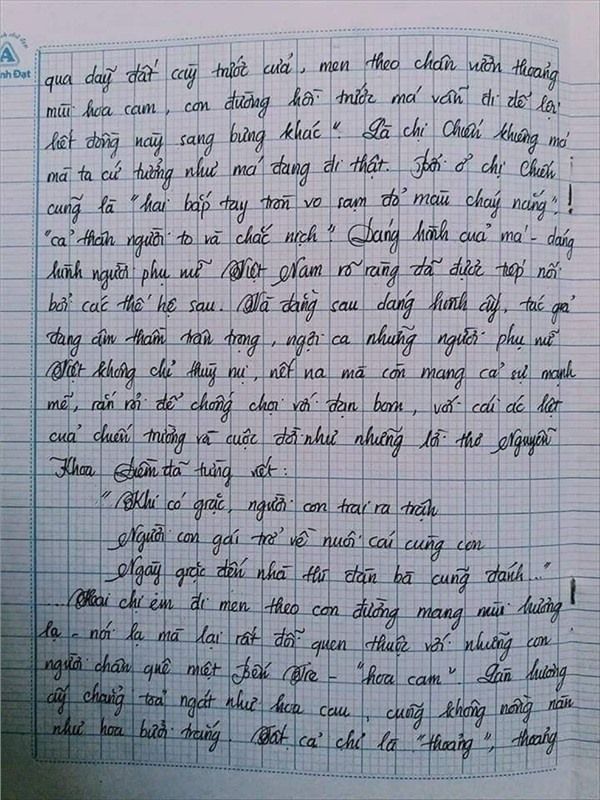 qua dãy đất cày trước cửa, men theo chân vườn thoảng
mùi hoa cam, con đường hồi trước má vẫn đi để lội
hết đồng này sang bưng khác". Là chị Chiến khiêng má
mà ta cứ tưởng như má đang đi thật. Bởi ở chị Chiến
cũng là "hai bắp tay tròn vo sạm đỏ màu cháy nắng",
"cả thân người to và chắc nịch". Dáng hình của má - dáng
hình người phụ nữ Việt Nam rõ ràng đã được tiếp nối
bởi các thế hệ sau. Và đằng sau dáng hình ấy, tác giả
đang âm thầm trân trọng, ngợi ca những người phụ nữ
Việt không chỉ thuỳ mị, nết na mà còn mang cả sự mạnh
mẽ, rắn rỏi để chống chọi với đạn bom, với cái ác liệt
của chiến trường và cuộc đời như những lời thơ Nguyễn
Khoa Điềm đã từng viết:
"Khi có giặc, người con trai ra trận
Người con gái trở về nuôi cái cùng con
Ngày giặc đến nhà thì đàn bà cũng đánh..."
Hai chị em đi men theo con đường mang mùi hương
lạ - nói lạ mà lại rất đỗi quen thuộc với những con
người chân quê miệt Bến Tre - "hoa cam". Làn hương
ấy chẳng toả ngát như hoa cau, cũng không nồng nàn
như hoa bưởi trắng. Tất cả chỉ là "thoảng", thoảng